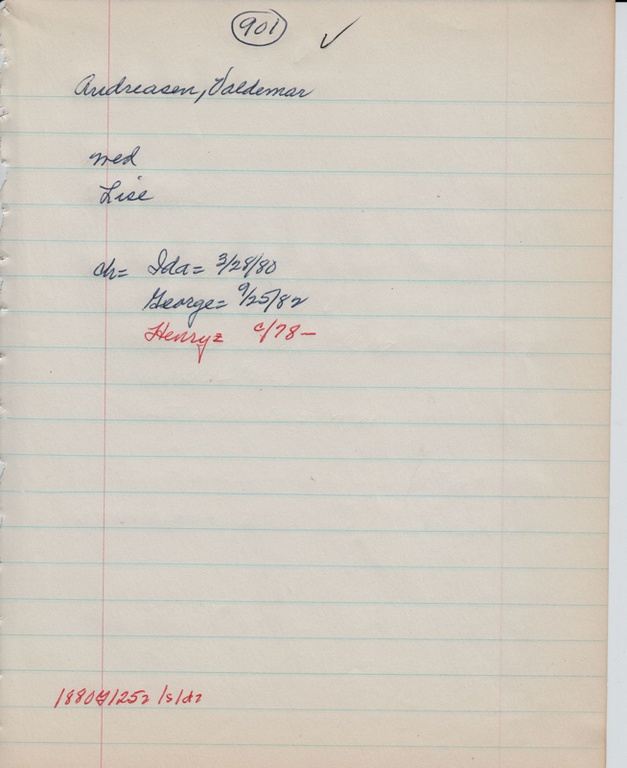 901 ✓
Andreasen, Valdemar
wed
Lise
ch= Ida= 3/28/80
George= 9/25/82
Henry= c/78—